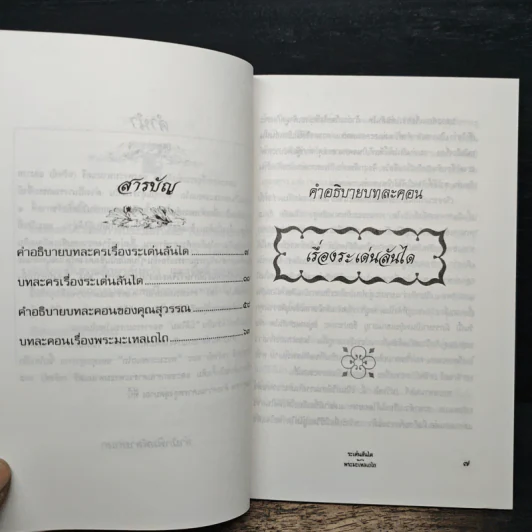 สารบัญ
คำอธิบายบทละครเรื่องระเด่นลันได ๗
บทละครเรื่องระเด่นลันได
คำอธิบายบทละคอนของคุณสุวรรณ
บทละคอนเรื่องพระมะเหลเถไถ
คำอธิบายบทละคอน
เรื่องระเด่นลันได
ระเด่นลันได
พระมะเหลเถไถ
๗